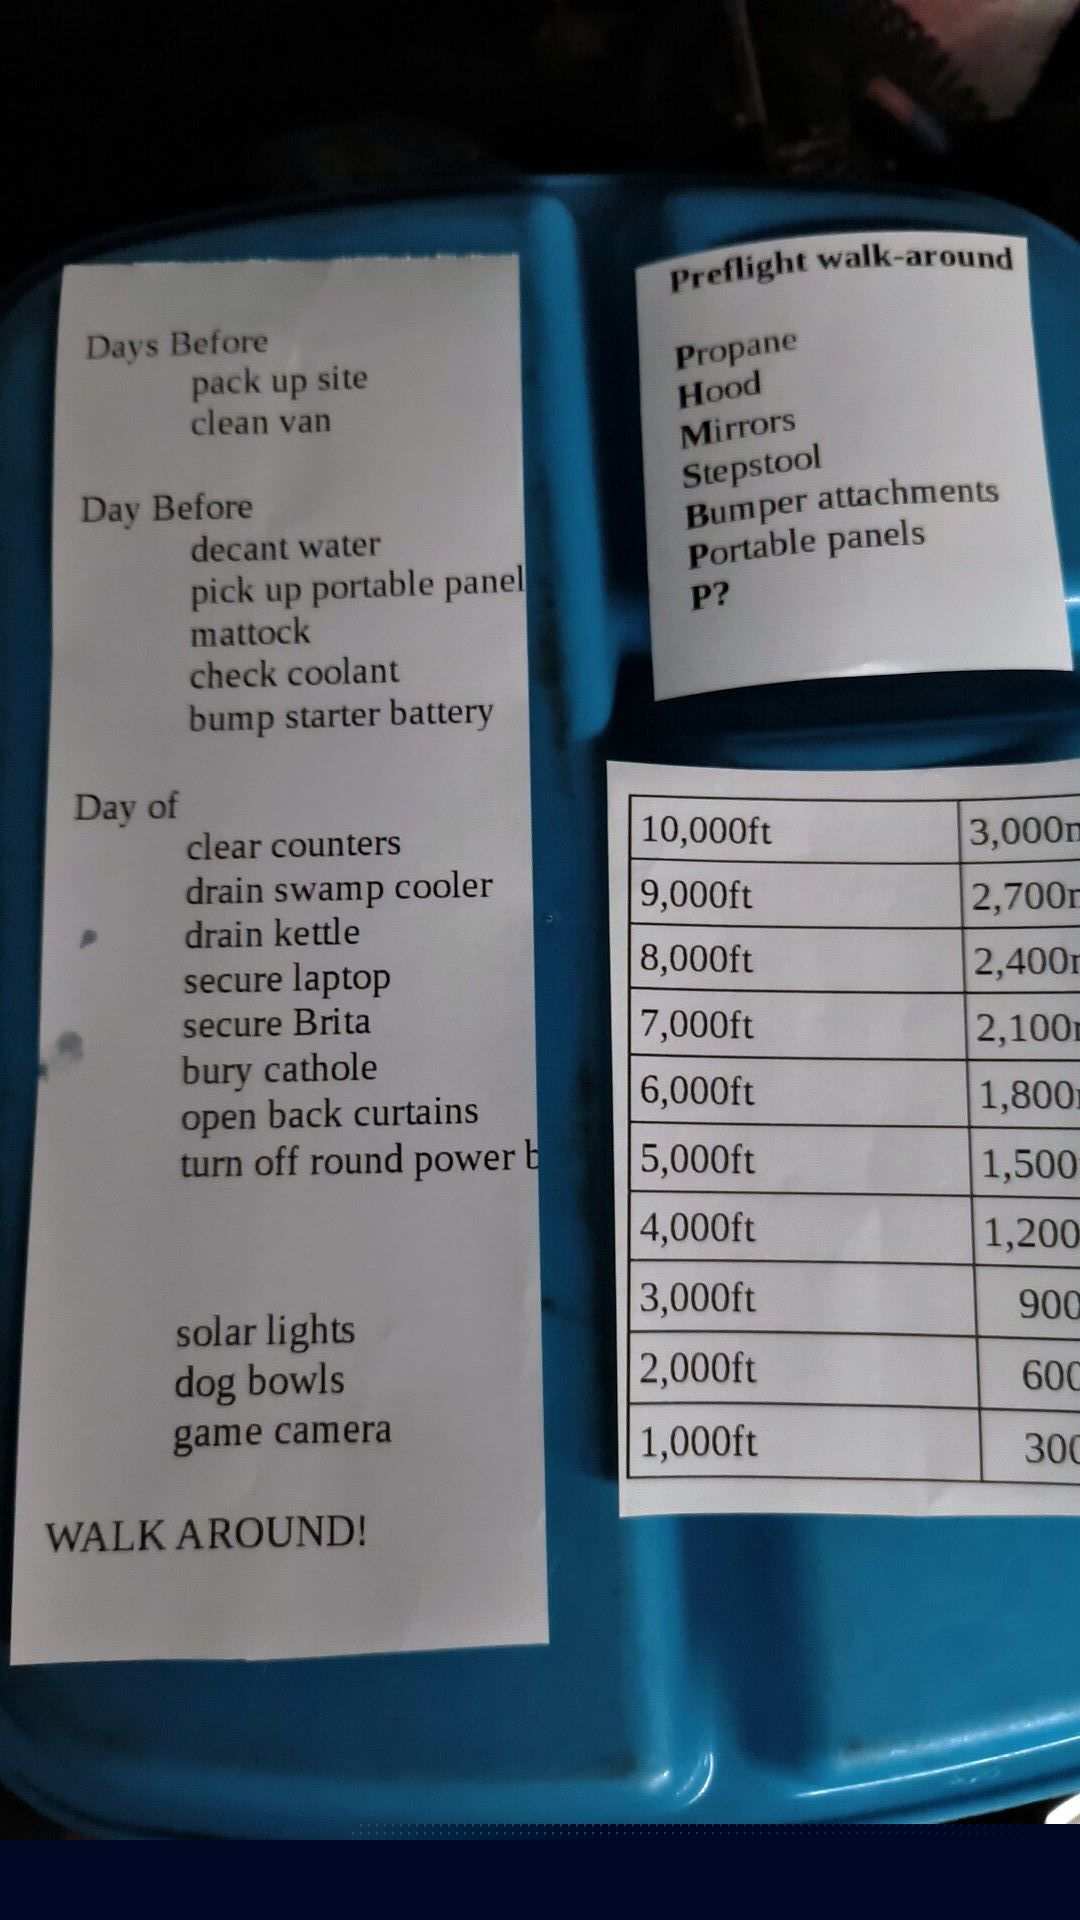 Days Before
pack up site
clean van
Day Before
decant water
pick up portable panel
mattock
check coolant
bump starter battery
Day of
clear counters
drain swamp cooler
drain kettle
secure laptop
secure Brita
bury cathole
open back curtains
turn off round power b
solar lights
dog bowls
game camera
WALK AROUND!
Preflight walk-around
Propane
Hood
Mirrors
Stepstool
Bumper attachments
Portable panels
P?
10,000ft 3,000m
9,000ft 2,700m
8,000ft 2,400m
7,000ft 2,100m
6,000ft 1,800m
5,000ft 1,500
4,000ft 1,200
3,000ft 900
2,000ft 600
1,000ft 300